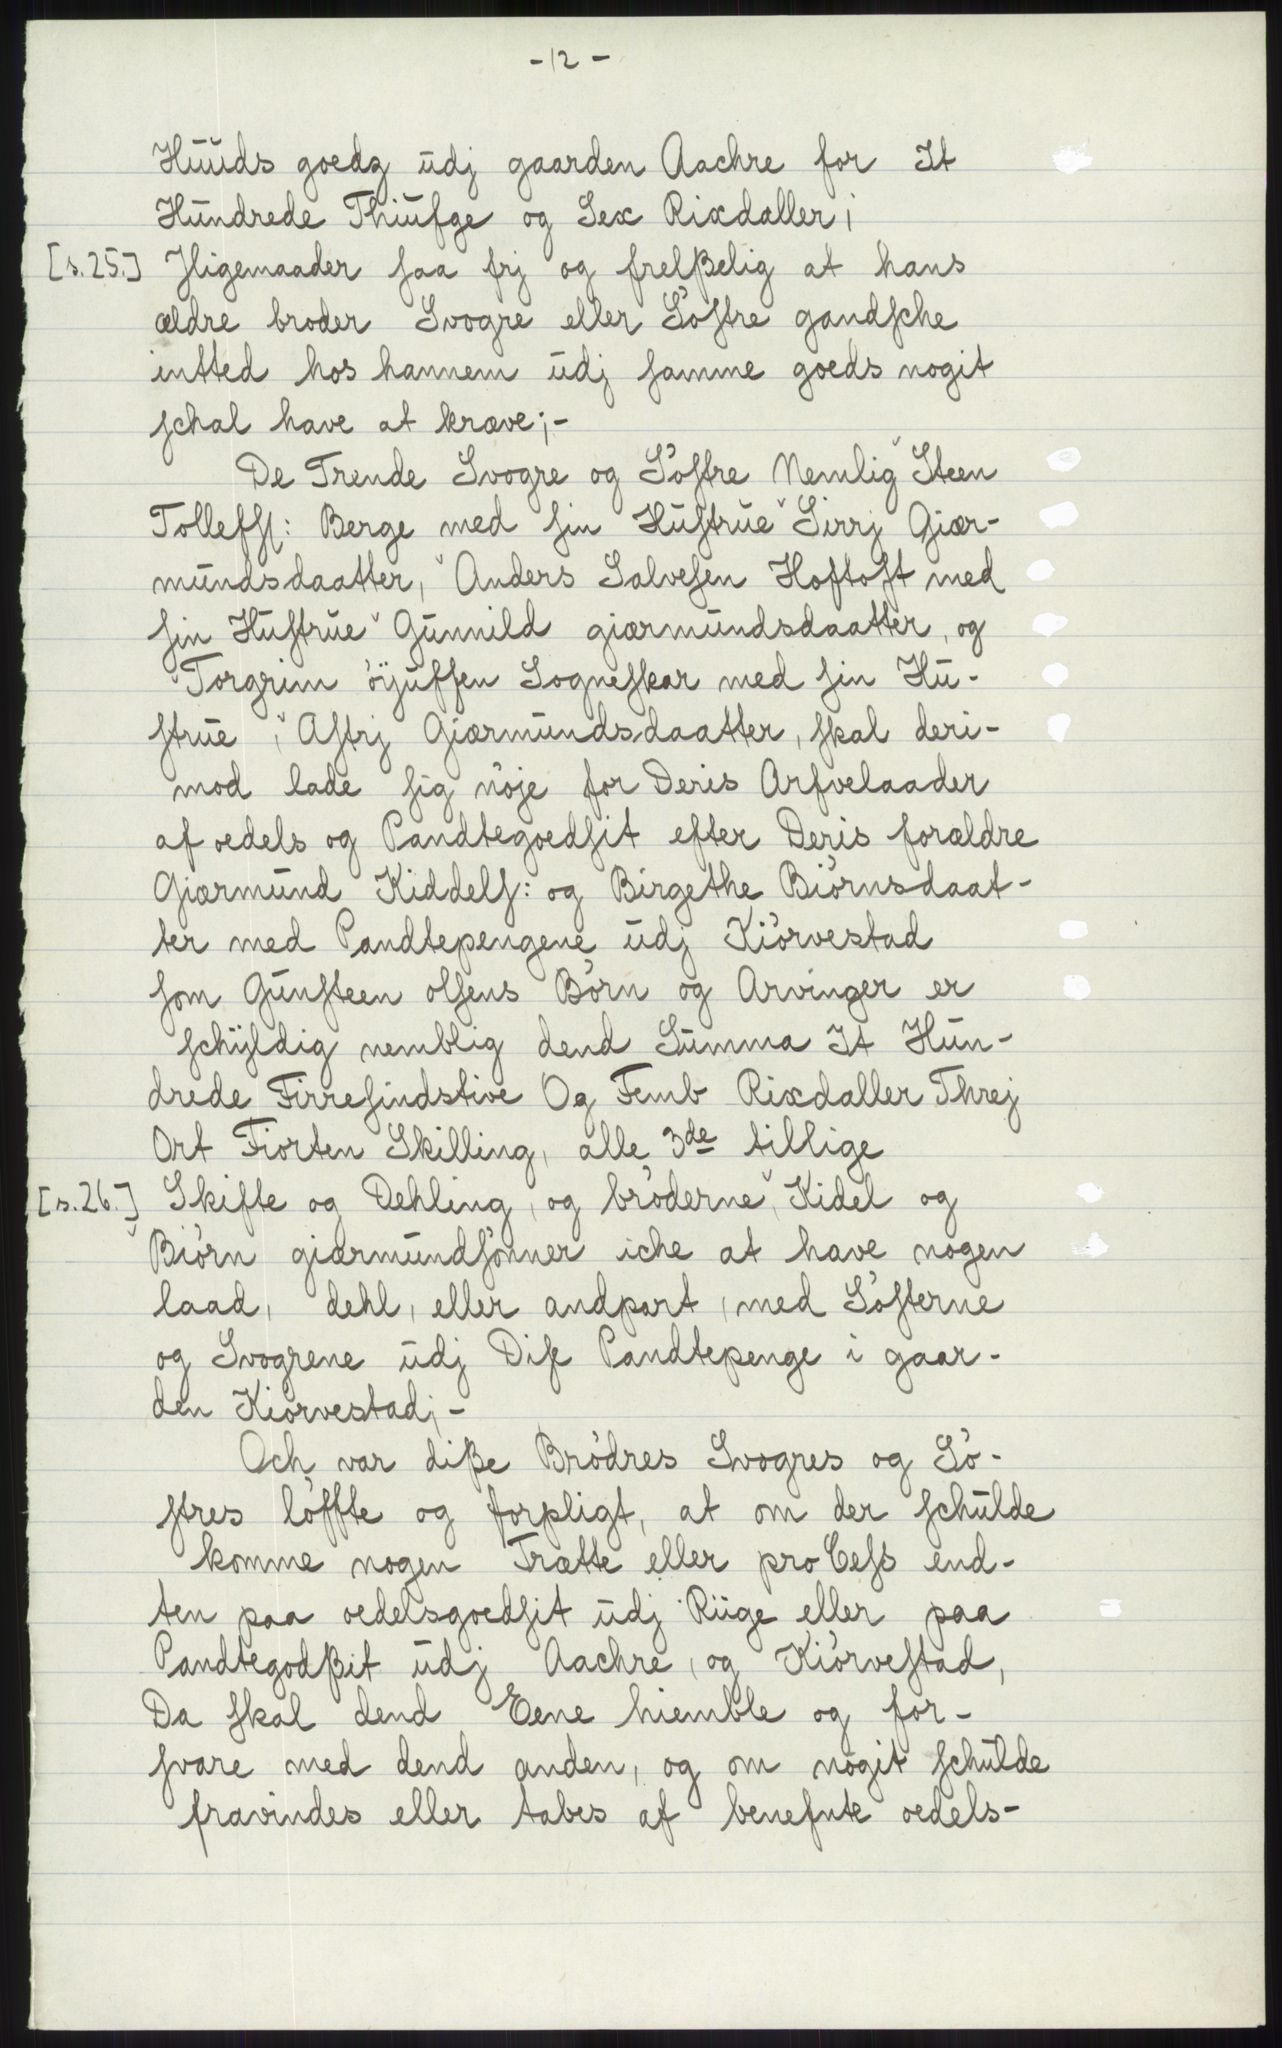 -12-
Huuds goedz udj gaarden Aachre for It
Hundrede Thiufge og Sex Rixdaller;
[s.25.] Jligemaader saa frj og frelßelig at hans
ældre broder Svogre eller Söstre gandsche
intted hos hannem udj samme goeds nogit
schal have at kræve;-
De Trende Svogre og Söstre Nemlig Steen
Tollefss: Berge med sin Hustrue Sirrj Giær-
mundsdaatter, Anders Salvesen Hoftoft med
sin Hustrue Gunnild giærmundsdaatter, og
Torgrim öÿuffsen Sogneskar med sin Hu-
strue, Astrj Giærmundsdaatter, skal deri-
mod lade sig nöje for Deris Arfvelaader
af oedels og Pandtegoedsit efter Deris forældre
Giærmund Kiddels: og Birgethe Biörnsdaat-
ter med Pandtepengene udj Kiörvestad
som Gunsteen olsens Börn og Arvinger er
schÿldig nemblig dend Summa It Hun-
drede Firresindstive Og Femb Rixdaller Threj
Ort Fiorten Skilling, alle 3de tillige
[s.26.] Skifte og Dehling, og bröderne, Kidel og
Biörn giærmundsönner iche at have nogen
laad, dehl, eller andpart, med Sösterne
og Svogrene udj Disse Pandtepenge i gaar-
den Kiörvestad;-
Och var diße Brödres Svogres og Sö-
stres löffte og forpligt, at om der schulde
komme nogen Trætte eller proCess end-
ten paa oedelsgoedsit udj Riige eller paa
Pandtegodßit udj Aachre, og Kiörvestad,
Da skal dend Eene hiemble og for-
svare med dend anden, og om nogit schulde
fravindes eller tabes af benefnte oedels-